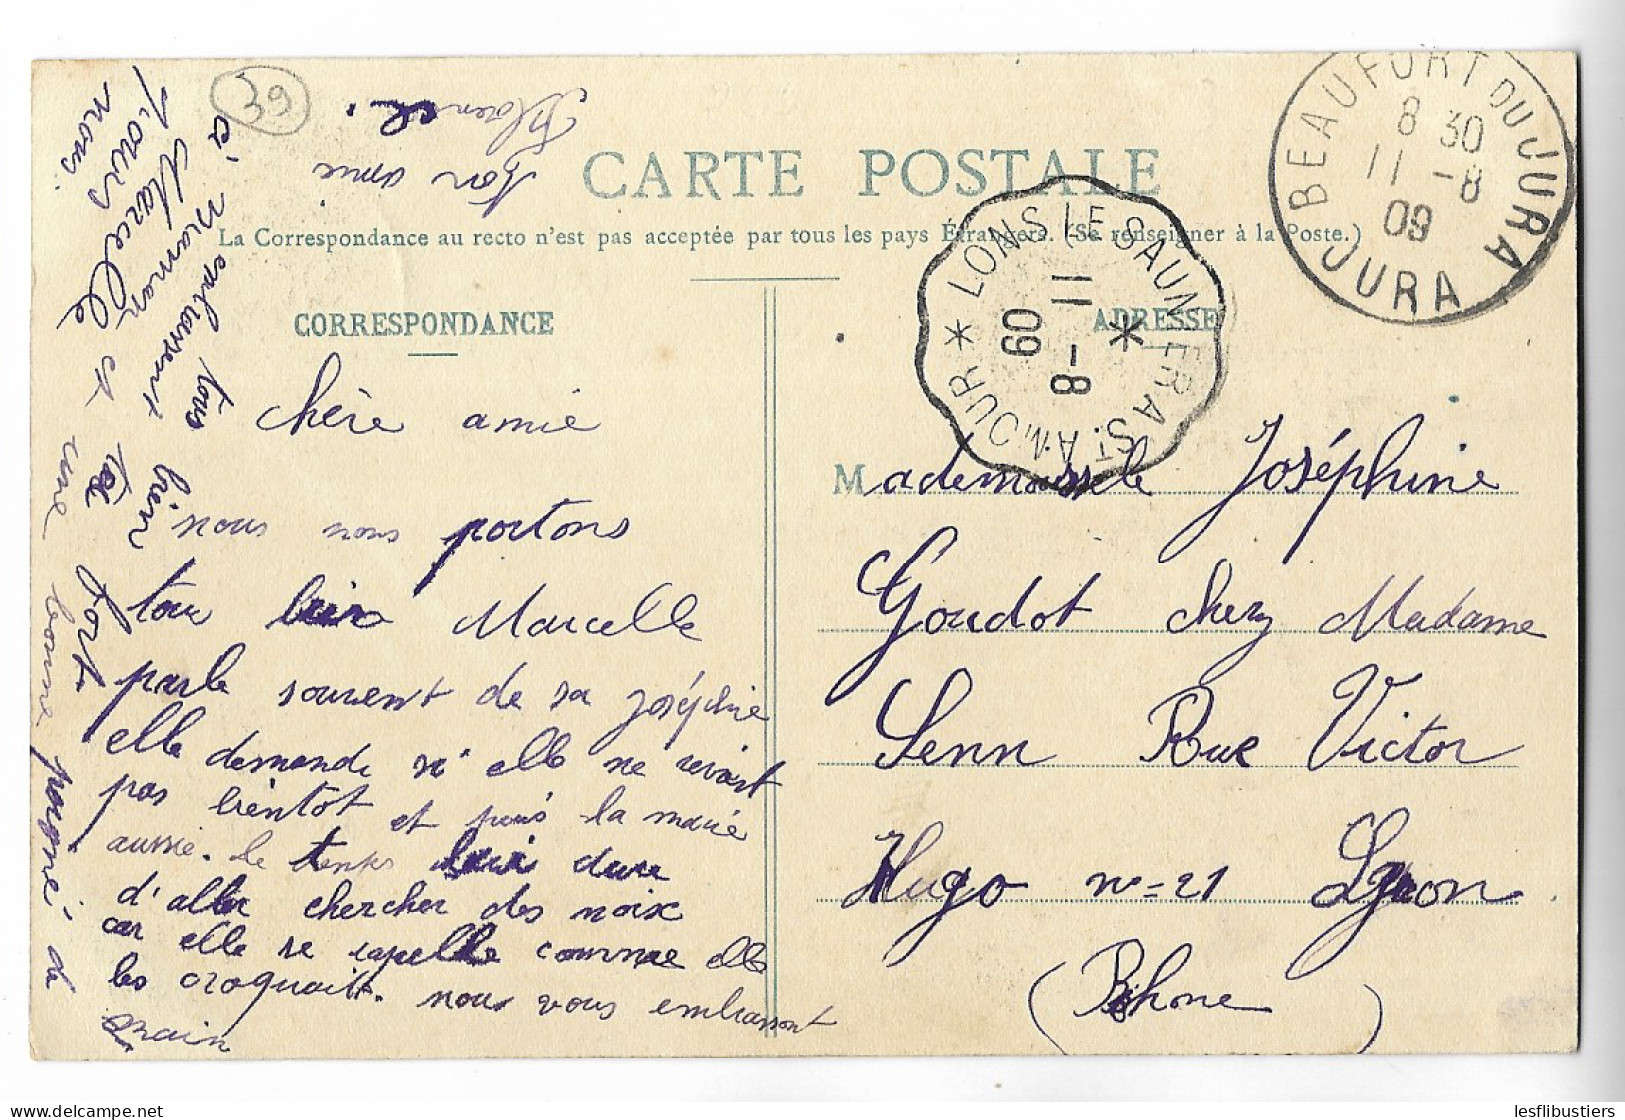 39
CARTE POSTALE
La Correspondance au recto n'est pas acceptée par tous les pays Étrangers. (Se renseigner à la Poste.)
CORRESPONDANCE
ADRESSE
BEAUFORT DU JURA
8 30
11 -8
09
JURA
LONS LE SAUNIER A ST AMOUR
11 -8
09
chère amie
nous nous portons
tous bien Marcelle
parle souvent de sa joséphine
elle demande si elle ne revoit
pas bientôt et puis la mairé
aussie. le temps lui dure
d'aller chercher des noix
car elle se rapelle comme elle
les croquait. nous vous embrassont
tous bien fort
Marcelle et
une bonne poigné de
main
ton amie
Mademoiselle Joséphine
Goudot chez Madame
Senn Rue Victor
Hugo n= 21 Lyon
(Rhone)
lesflibustiers